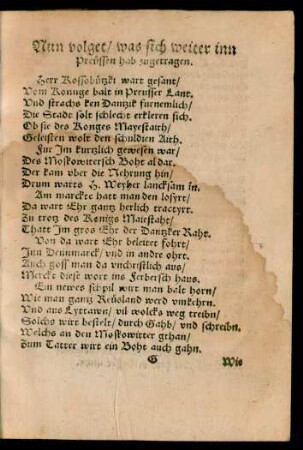 Nun volget / was sich weiter inn
Preüssen hab zugetragen.
Herr Kossobützki wart gesant /
Vom Konnge halt in Preusser Lant.
Vnd strachs ken Dantzik furnemlich /
Die Stadt solt schlecht erkleren sich.
Ob sie des Konges Mayestath /
Geleisten wolt den schuldien Aith.
Fur Jm kurtzlich gewesen war /
Des Moskowitersch Boht aldar.
Der kam vber die Nehrung hin /
Drum warts H. Weyher lancksam in.
Am marckte hatt man den losyrt /
Da wart Ehr gantz herlich tractyrt.
Zu trotz des Konigs Maiestaht /
Thatt Jm gros Ehr der Dantzker Raht.
Von da wart Ehr beleitet fohrt /
Jnn Dennmarck / vnd in andre ohrt.
Auch goss man da vnchristlich aus /
Merckt diese wort ins Ferbersch haus.
Ein newes schpil wirt man balt horn /
Wie man gantz Reüsland werd vmkehrn.
Vnd aus Lyttawn / vil wolcks weg treibn /
Solchs wirt bestelt / durch Gahb / vnd schreibn.
Welchs an den Moskowitter gthan /
Zum Tatter wirt ein Boht auch gahn.
G Wie